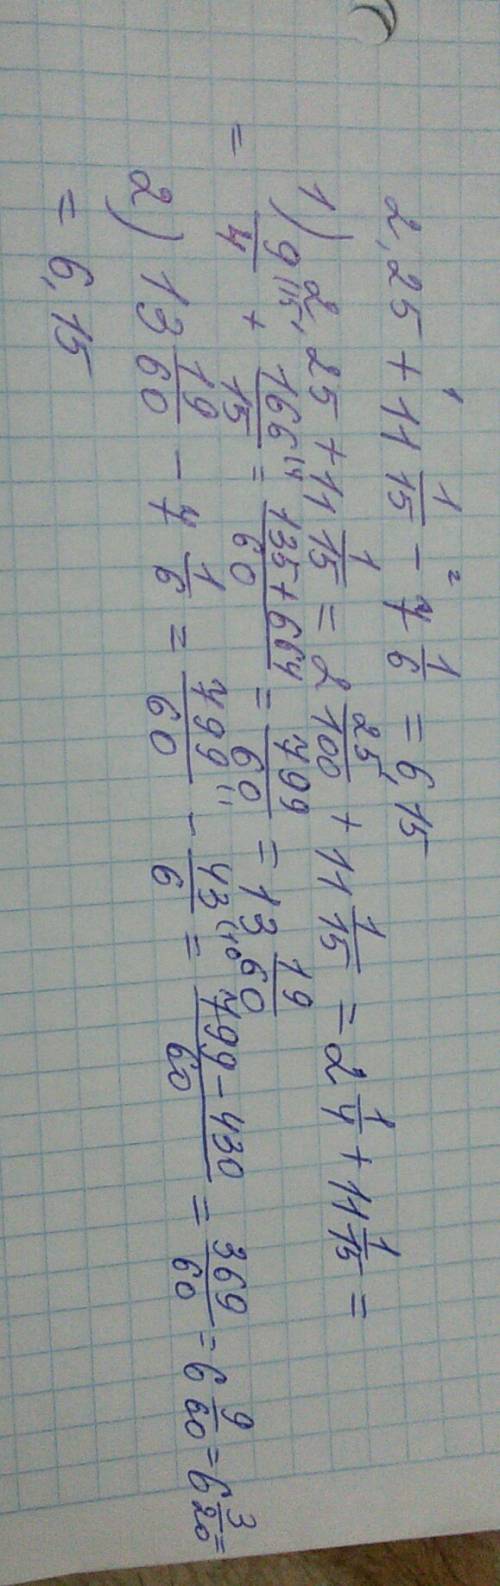 2,25 + 11 1/15 - 7 1/6 = 6,15
1) 2,25 + 11 1/15 = 2 25/100 + 11 1/15 = 2 1/4 + 11 1/15 =
= 9/4 + 166/15 = 135+664/60 = 799/60 = 13 19/60
2) 13 19/60 - 7 1/6 = 799/60 - 43/6 = 799-430/60 = 369/60 = 6 9/60 = 6 3/20 =
= 6,15